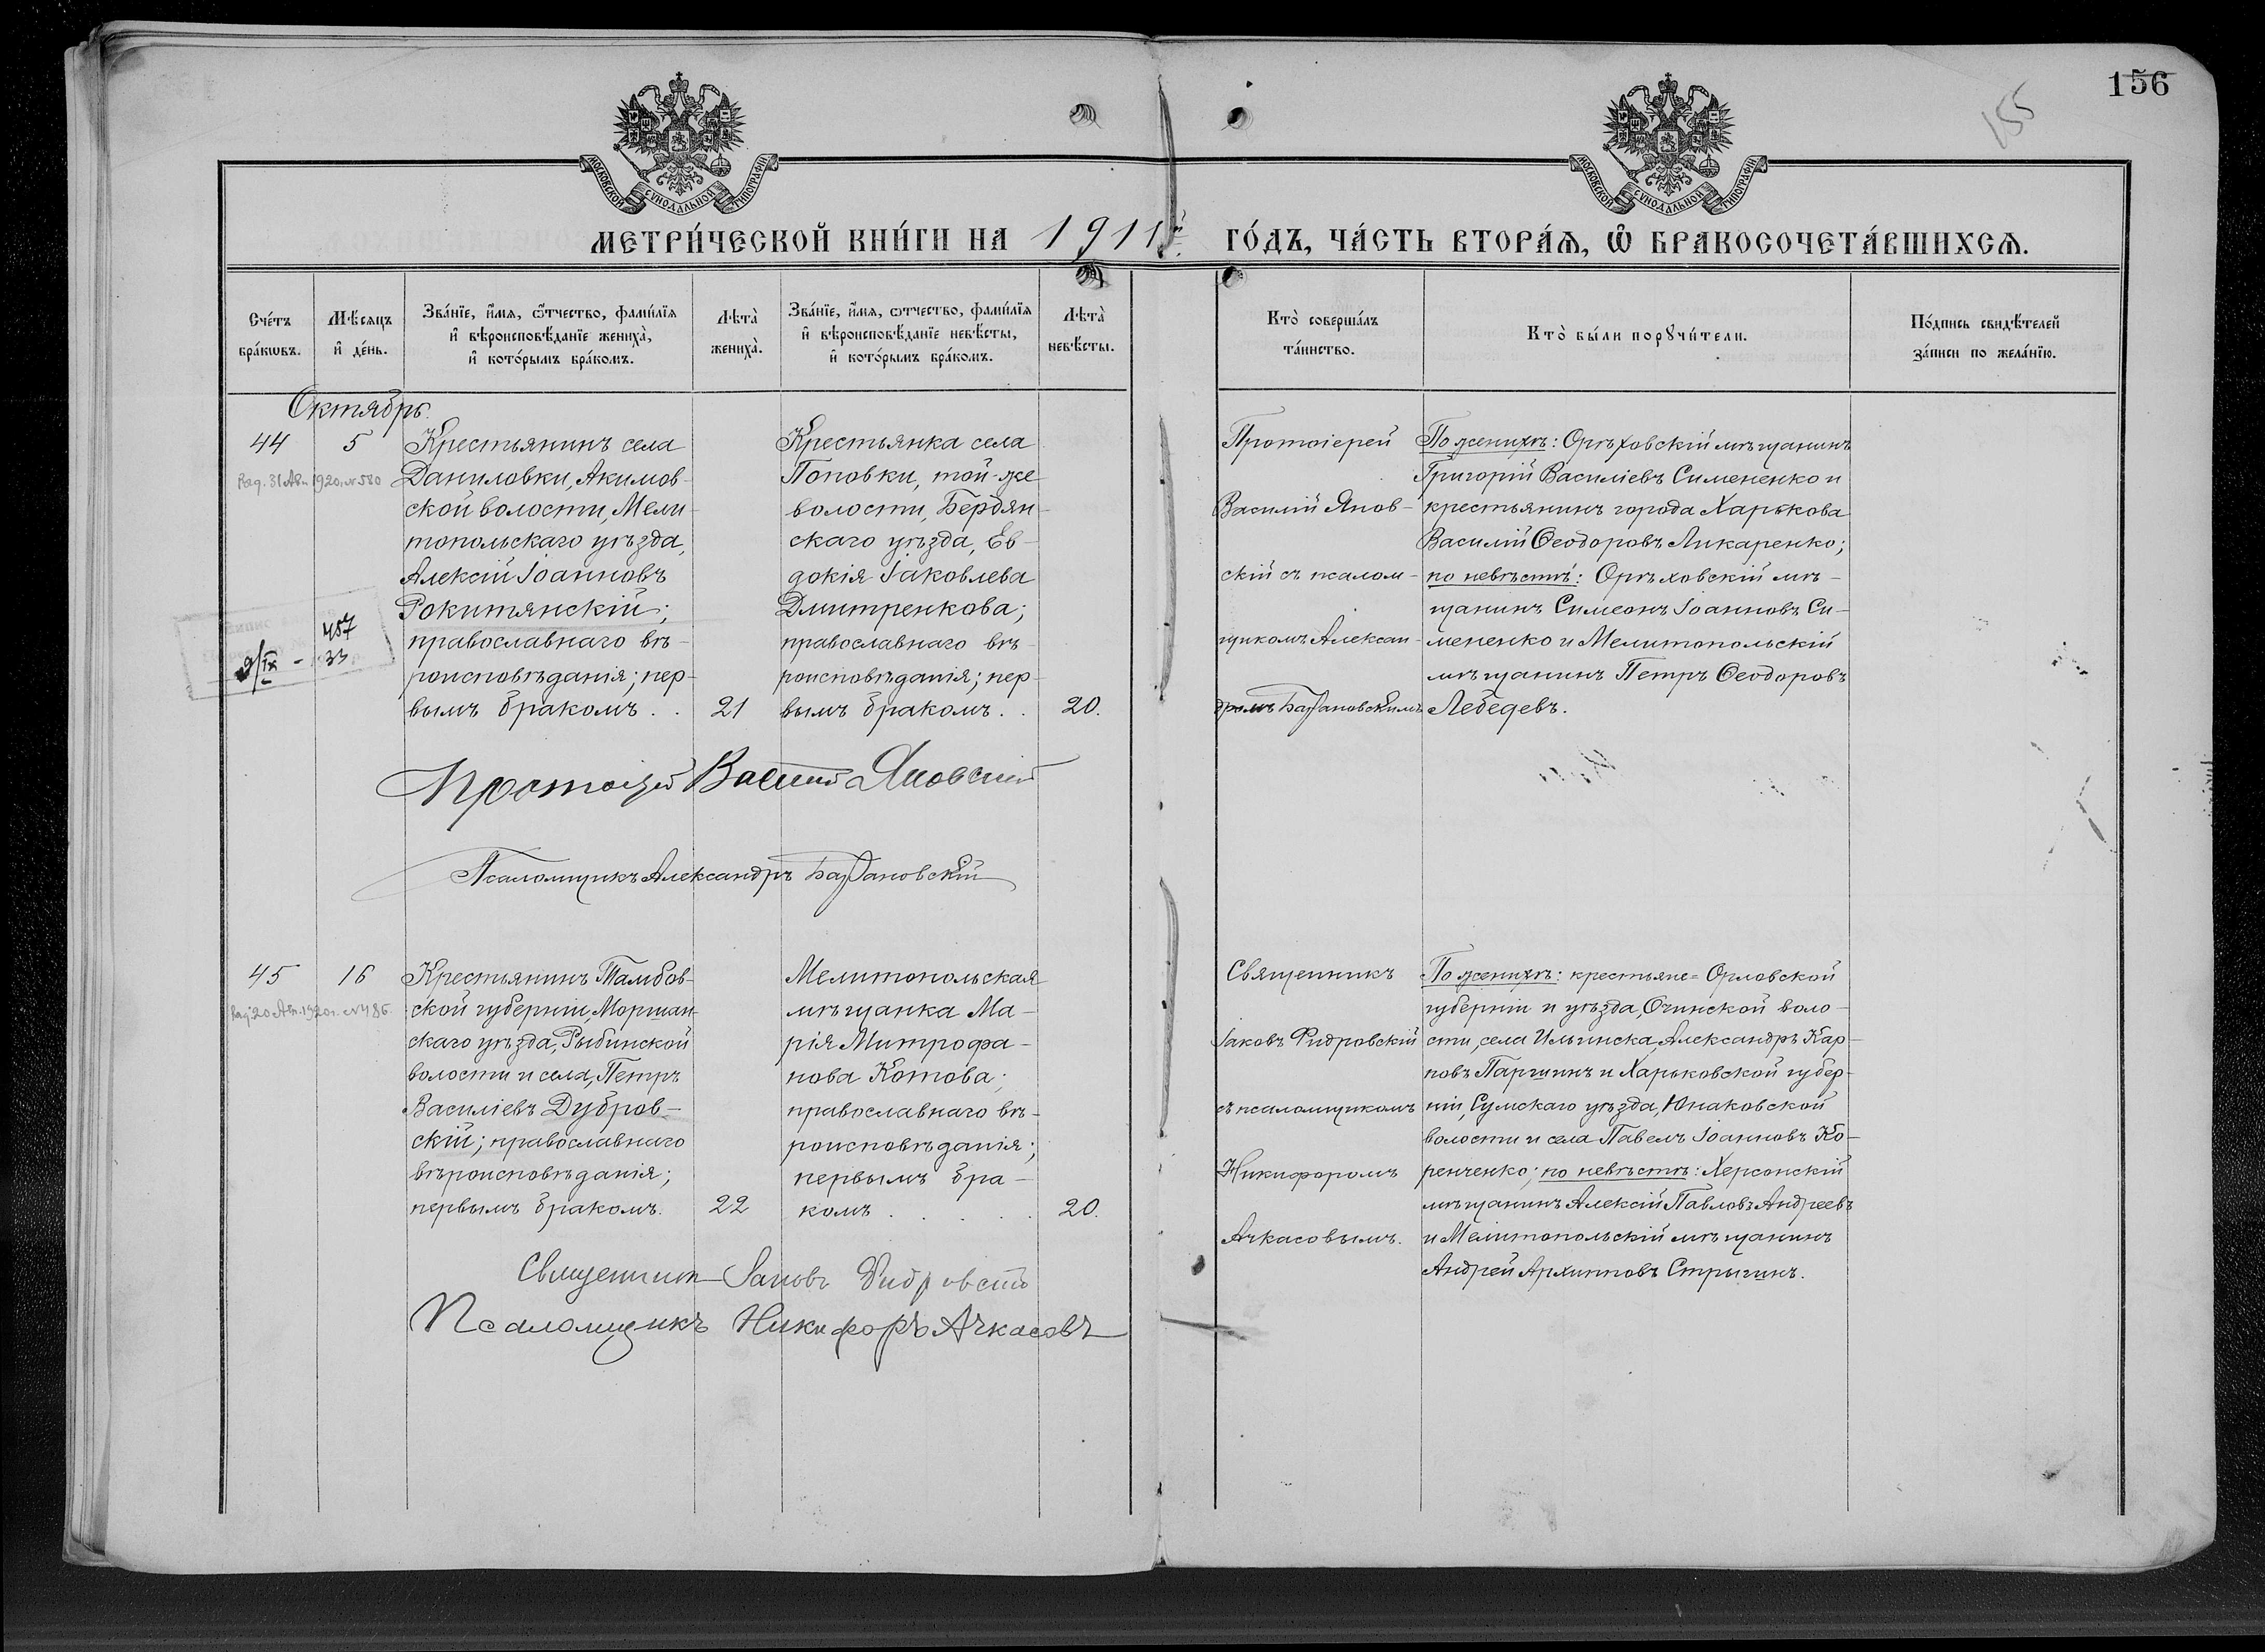 156
155
МОСКОВСКОЙ СУНОДАЛЬНОЙ ТИПОГРАФІИ
МОСКОВСКОЙ СУНОДАЛЬНОЙ ТИПОГРАФІИ
МЕТРИ́ЧЕСКОЙ КНИ́ГИ НА 1911й ГО́ДЪ, ЧА́СТЬ ВТОРА́Ѧ, Ѿ БРАКОСОЧЕТА́ВШИХСѦ.
Сче́тъ
бра́кѡвъ.
Мѣ́сяцъ
и҆ де́нь.
Зва́нїе, и҆́мя, ѻ҆́тчество, фами́лїя
и҆ вѣроисповѣ́данїе жениха̀,
и҆ кото́рымъ бра́комъ.
Лѣта̀
жениха̀.
Зва́нїе, и҆́мя, ѻтчество, фами́лїя
и҆ вѣроисповѣ́данїе невѣ́сты,
и҆ кото́рымъ бра́комъ.
Лѣта̀
невѣ́сты.
Кто̀ соверша́лъ
та́инство.
Кто̀ бы́ли порꙋчи́тели.
По́дпись свидѣ́телей
за́писи по жела́нїю.
Октябрь.
44
5
31 Авг. 1920. № 580
457
9/IX - 33
Крестьянинъ села
Даниловки, Акимов-
ской волости, Мели-
топольскаго уѣзда,
Алексій Іоанновъ
Рокитянскій;
православнаго вѣ-
роисповѣданія; пер-
вымъ бракомъ . .
21
Крестьянка села
Поповки, той-же
волости, Бердян-
скаго уѣзда, Ев-
докія Іаковлева
Дмитренкова;
православнаго вѣ-
роисповѣданія; пер-
вымъ бракомъ . .
20.
Протоіерей
Василій Янов-
скій съ псалом-
щикомъ Алексан-
дромъ Баздановскимъ
По женихѣ: Орѣховскій мѣщанинъ
Григорій Василіевъ Симененко и
крестьянинъ города Харькова
Василій Ѳеодоровъ Ликаренко;
по невѣстѣ: Орѣховскій мѣ-
щанинъ Симеонъ Іоанновъ Си-
мененко и Мелитопольскій
мѣщанинъ Петръ Ѳеодоровъ
Лебедевъ.
Протоіерей Василій Яновскій
Псаломщикъ Александръ Баздановскій
45
16
20 Авг. 1920г. № 486
Крестьянинъ Тамбов-
ской губерніи, Моршан-
скаго уѣзда, Рыбинской
волости и села, Петръ
Василіевъ Дубров-
скій; православнаго
вѣроисповѣданія;
первымъ бракомъ.
22
Мелитопольская
мѣщанка Ма-
рія Митрофа-
нова Котова;
православнаго вѣ-
роисповѣданія;
первымъ бра-
комъ . . . . .
20.
Священникъ
Іаковъ Фидровскій
съ псаломщикомъ
Никифоромъ
Ачкасовымъ.
По женихѣ: крестьяне = Орловской
губерніи и уѣзда, Очинской воло-
сти, села Ильинска, Александръ Кар-
повъ Паршинъ и Харьковской губер-
ніи, Сумскаго уѣзда, Юнаковской
волости и села Павелъ Іоанновъ Ко-
ренченко; по невѣстѣ: Херсонскій
мѣщанинъ Алексій Павловъ Андреевъ
и Мелитопольскій мѣщанинъ
Андрей Архиповъ Стрыгинъ.
Священникъ Іаковъ Фидровскій
Псаломщикъ Никифоръ Ачкасовъ